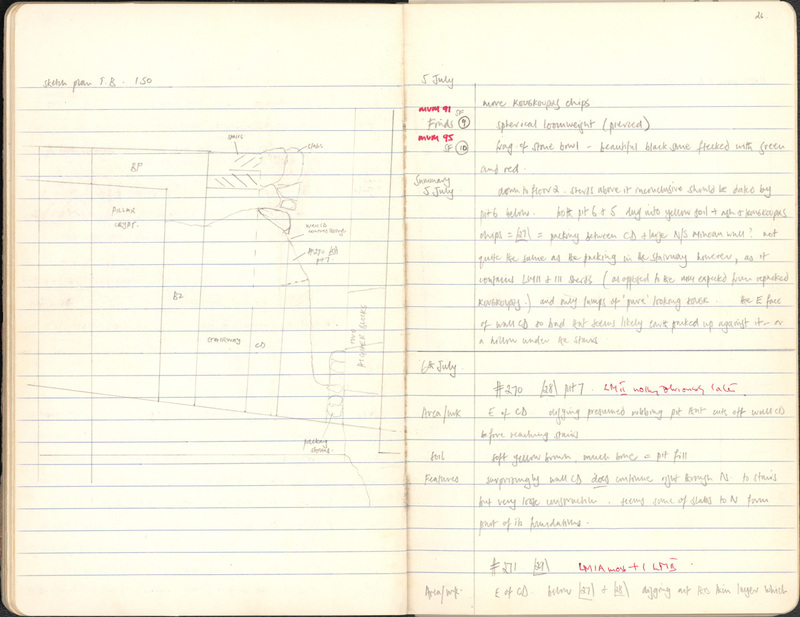 sketch plan T.B. 1:50
stairs
slabs
BP
PILLAR
CRYPT.
wall CD
#270 [28]
pit 7
B2
CD
THIS
HIGHER BLOCKS
packing
stones
26
5 July
more KOUSKOUPAS chips
MUM 91
Finds SF 9 spherical loomweight (pierced)
MUM 95
SF 10 frag of stone bowl - beautiful black stone flecked with green
and red.
Summary
5 July down to floor 2. sherds above it inconclusive should be dated by
pit 6 below. both pit 6 + 5 dug into yellow soil + ash + kouskoupas
chips = [27] = packing between CD + large N/S minoan wall? not
quite the same as the packing in the stairway however, as it
contains LMII + III sherds (as opposed to the expected from repacked
kouskoupas.) and only lumps of 'pure' looking kousk. the E face
of wall CD so bad that seems likely earth packed up against it - or
a hollow under the stairs
6th July.
#270 [28] pit 7. LMII nothing obviously late.
Area/wk E of CD digging presumed robbing pit that cuts off wall CD
before reaching stairs
Soil soft yellow brown, much bone = pit fill
Features surprisingly wall CD does continue right through N. to stairs
but very loose construction. seems some of slabs to N form
part of its foundations.
#271 [29] LMIA most + 1 LMII
Area/wk. E of CD. below [27] + [28] digging out this thin layer which